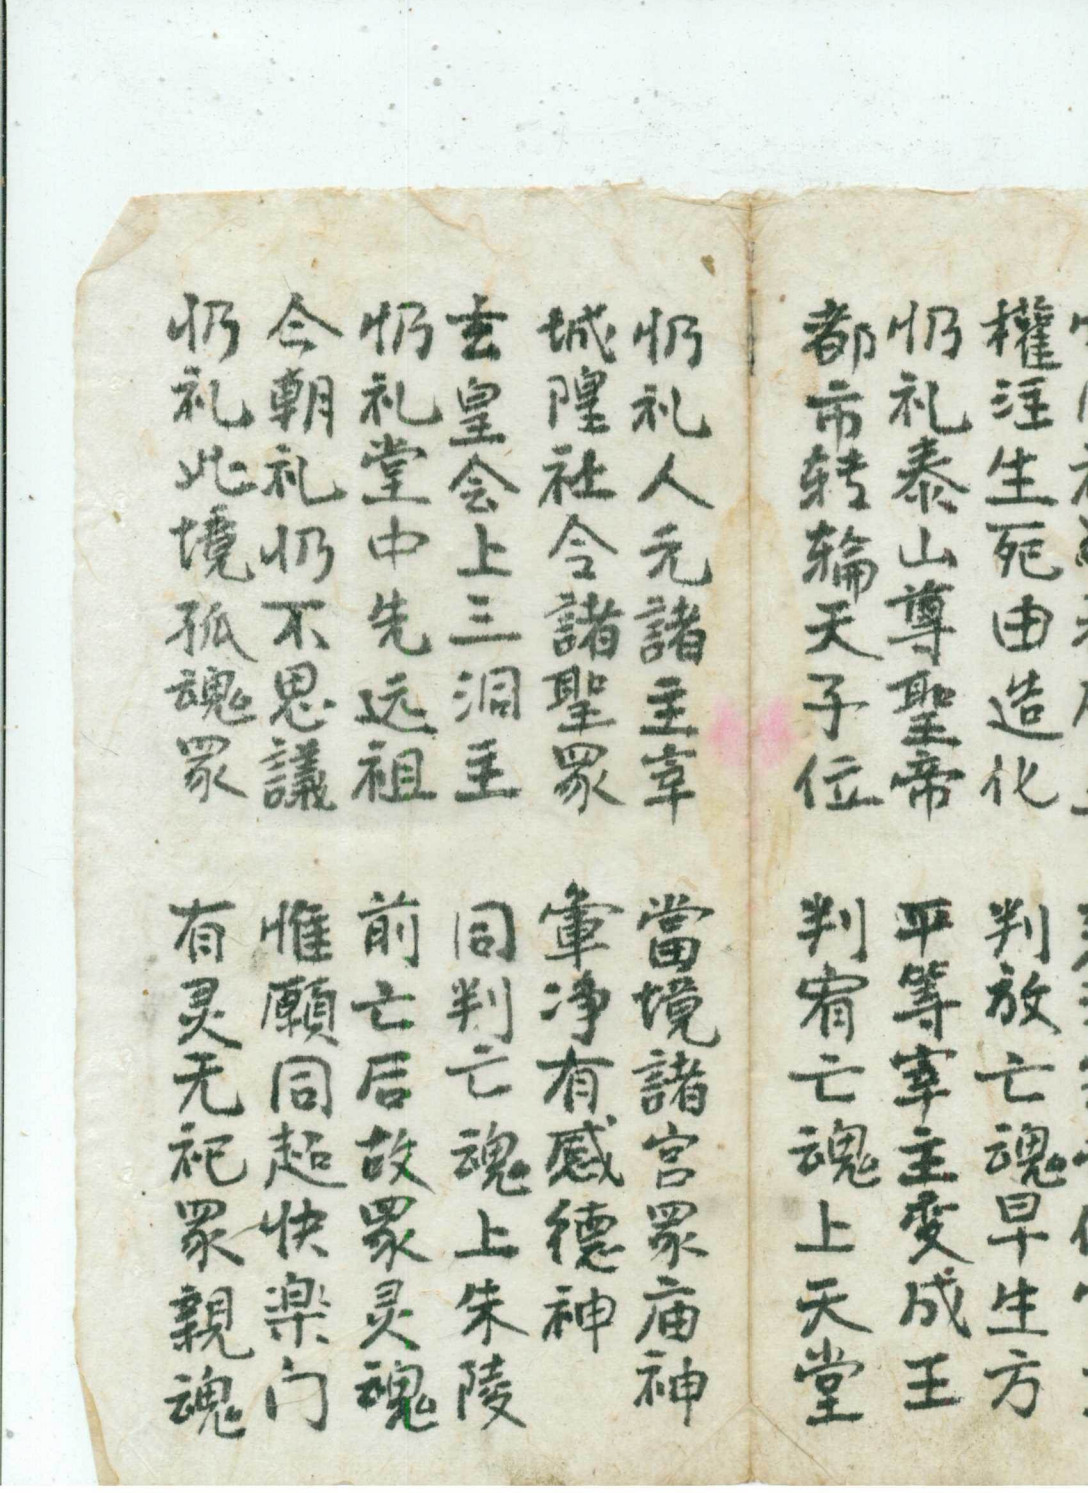 權注生死由造化 判放亡魂早生方
忉礼泰山尊聖帝 平等宰主变成王
都市转輪天子位 判宥亡魂上天堂
忉礼人元諸主宰 當境諸宫眾庙神
城隍社令諸聖眾 净有感德神
玄皇会上三洞主 同判亡魂上朱陵
忉礼堂中先远祖 前亡后故眾灵魂
今朝礼忉不思議 惟願同超快楽门
忉礼此境孤魂眾 有灵无祀眾親魂